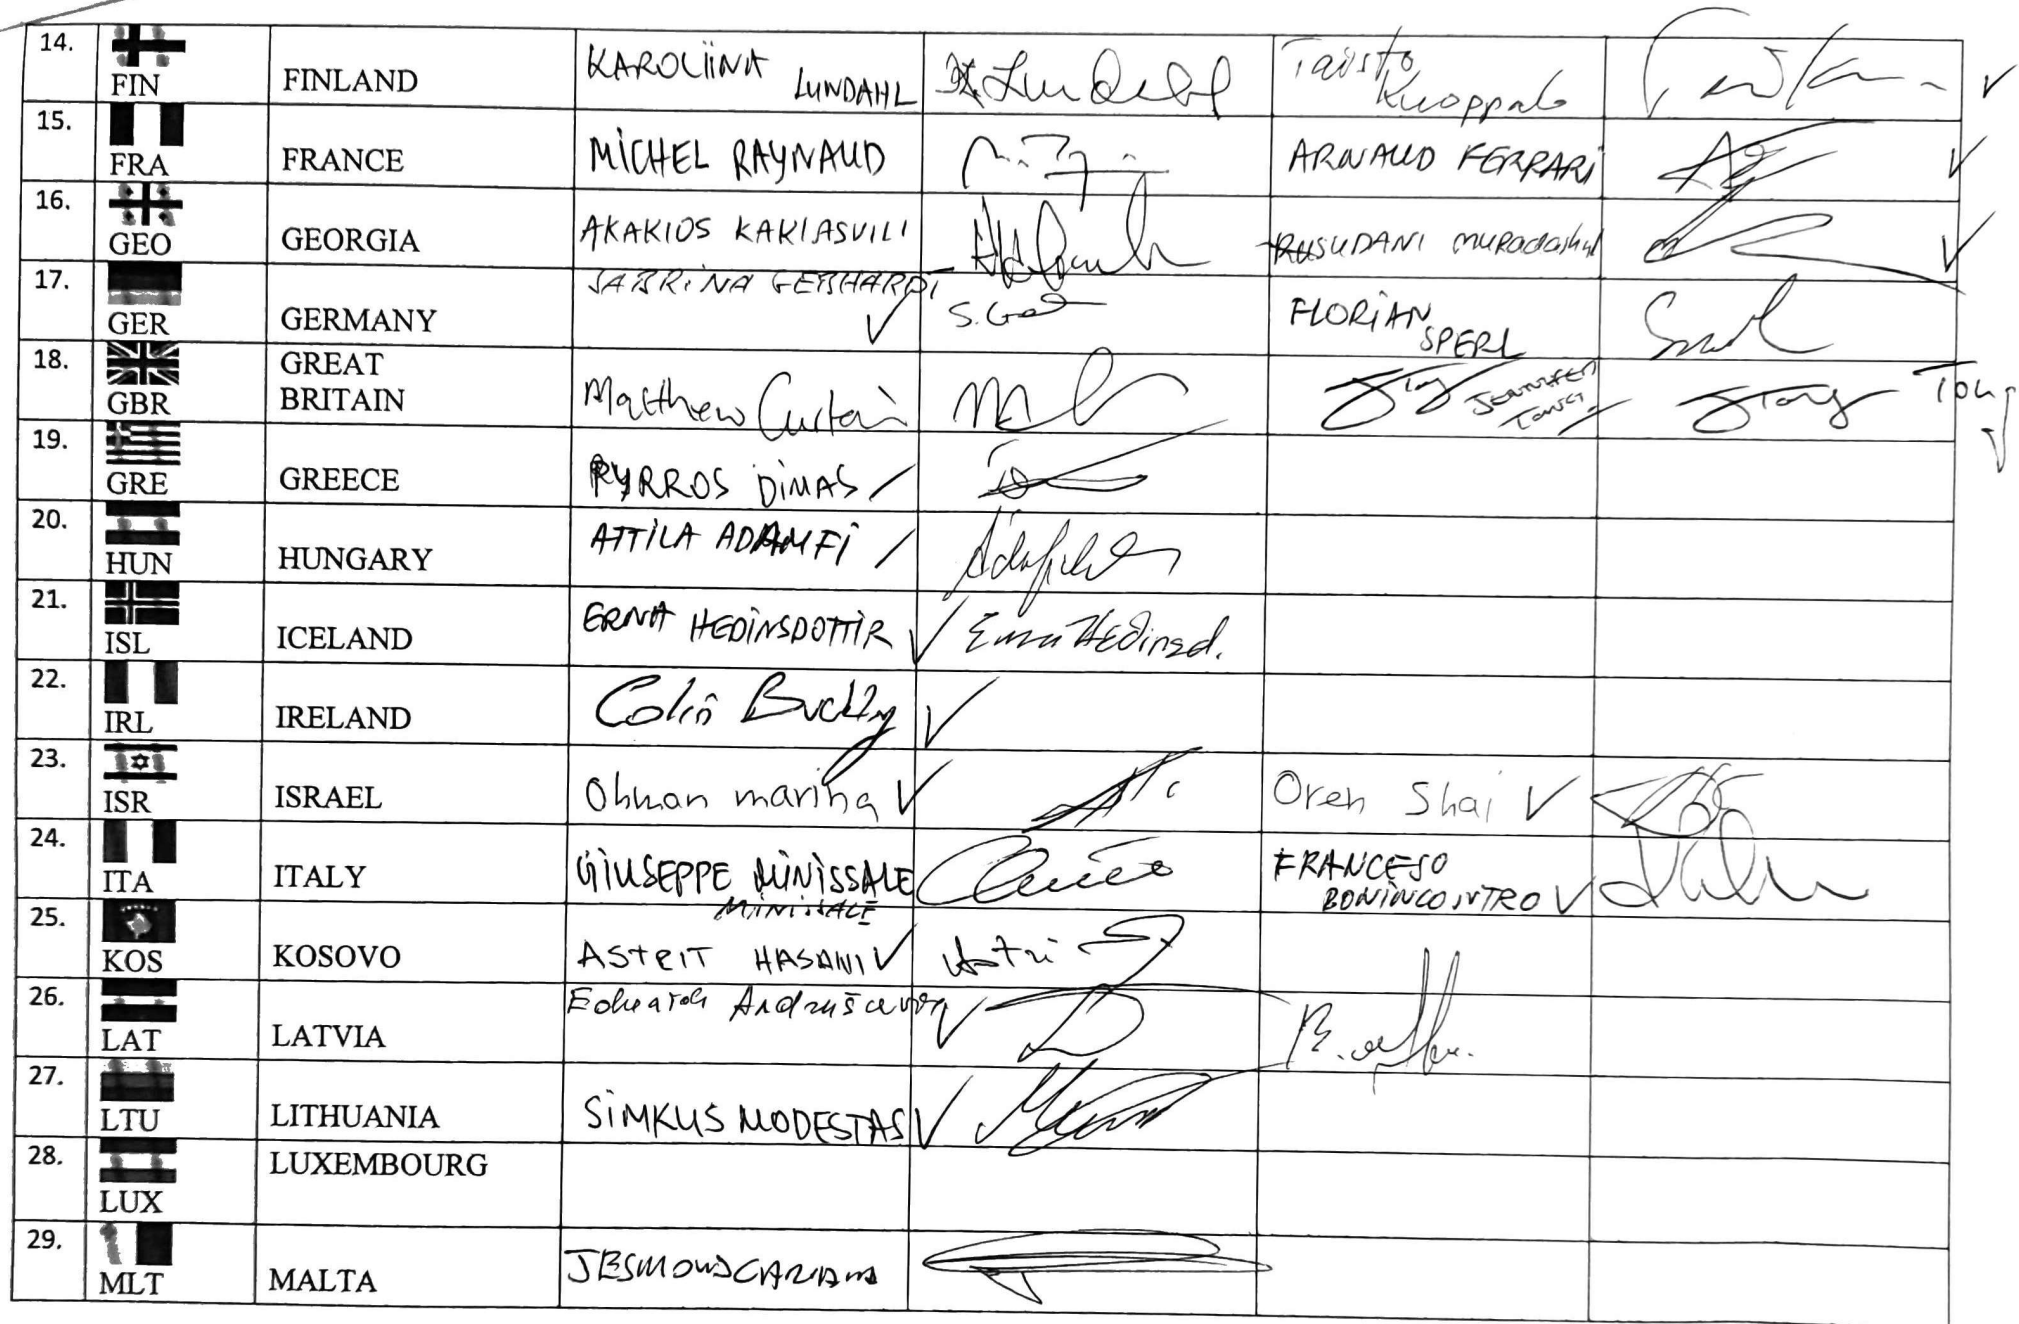 14. FIN FINLAND KAROLIINA LUNDAHL Taisto Kuoppala
15. FRA FRANCE MICHEL RAYNAUD ARNAUD FERRARI
16. GEO GEORGIA AKAKIOS KAKIASVILI RUSUDANI
17. GER GERMANY SABRINA GEBHARDT S. FLORIAN SPERL
18. GBR GREAT BRITAIN Matthew Curtain JENNIFER TONG Tong
19. GRE GREECE PYRROS DIMAS
20. HUN HUNGARY ATTILA ADAMFI
21. ISL ICELAND ERNA HEDINSDOTTIR Erna Hedinsd.
22. IRL IRELAND Colin Buckley
23. ISR ISRAEL Ohman marina Oren Shai
24. ITA ITALY GIUSEPPE MINISSALE MINISSALE FRANCESO BONINCONTRO
25. KOS KOSOVO ASTRIT HASANI
26. LAT LATVIA Eduards
27. LTU LITHUANIA SIMKUS MODESTAS
28. LUX LUXEMBOURG
29. MLT MALTA JESMOND CARUANA